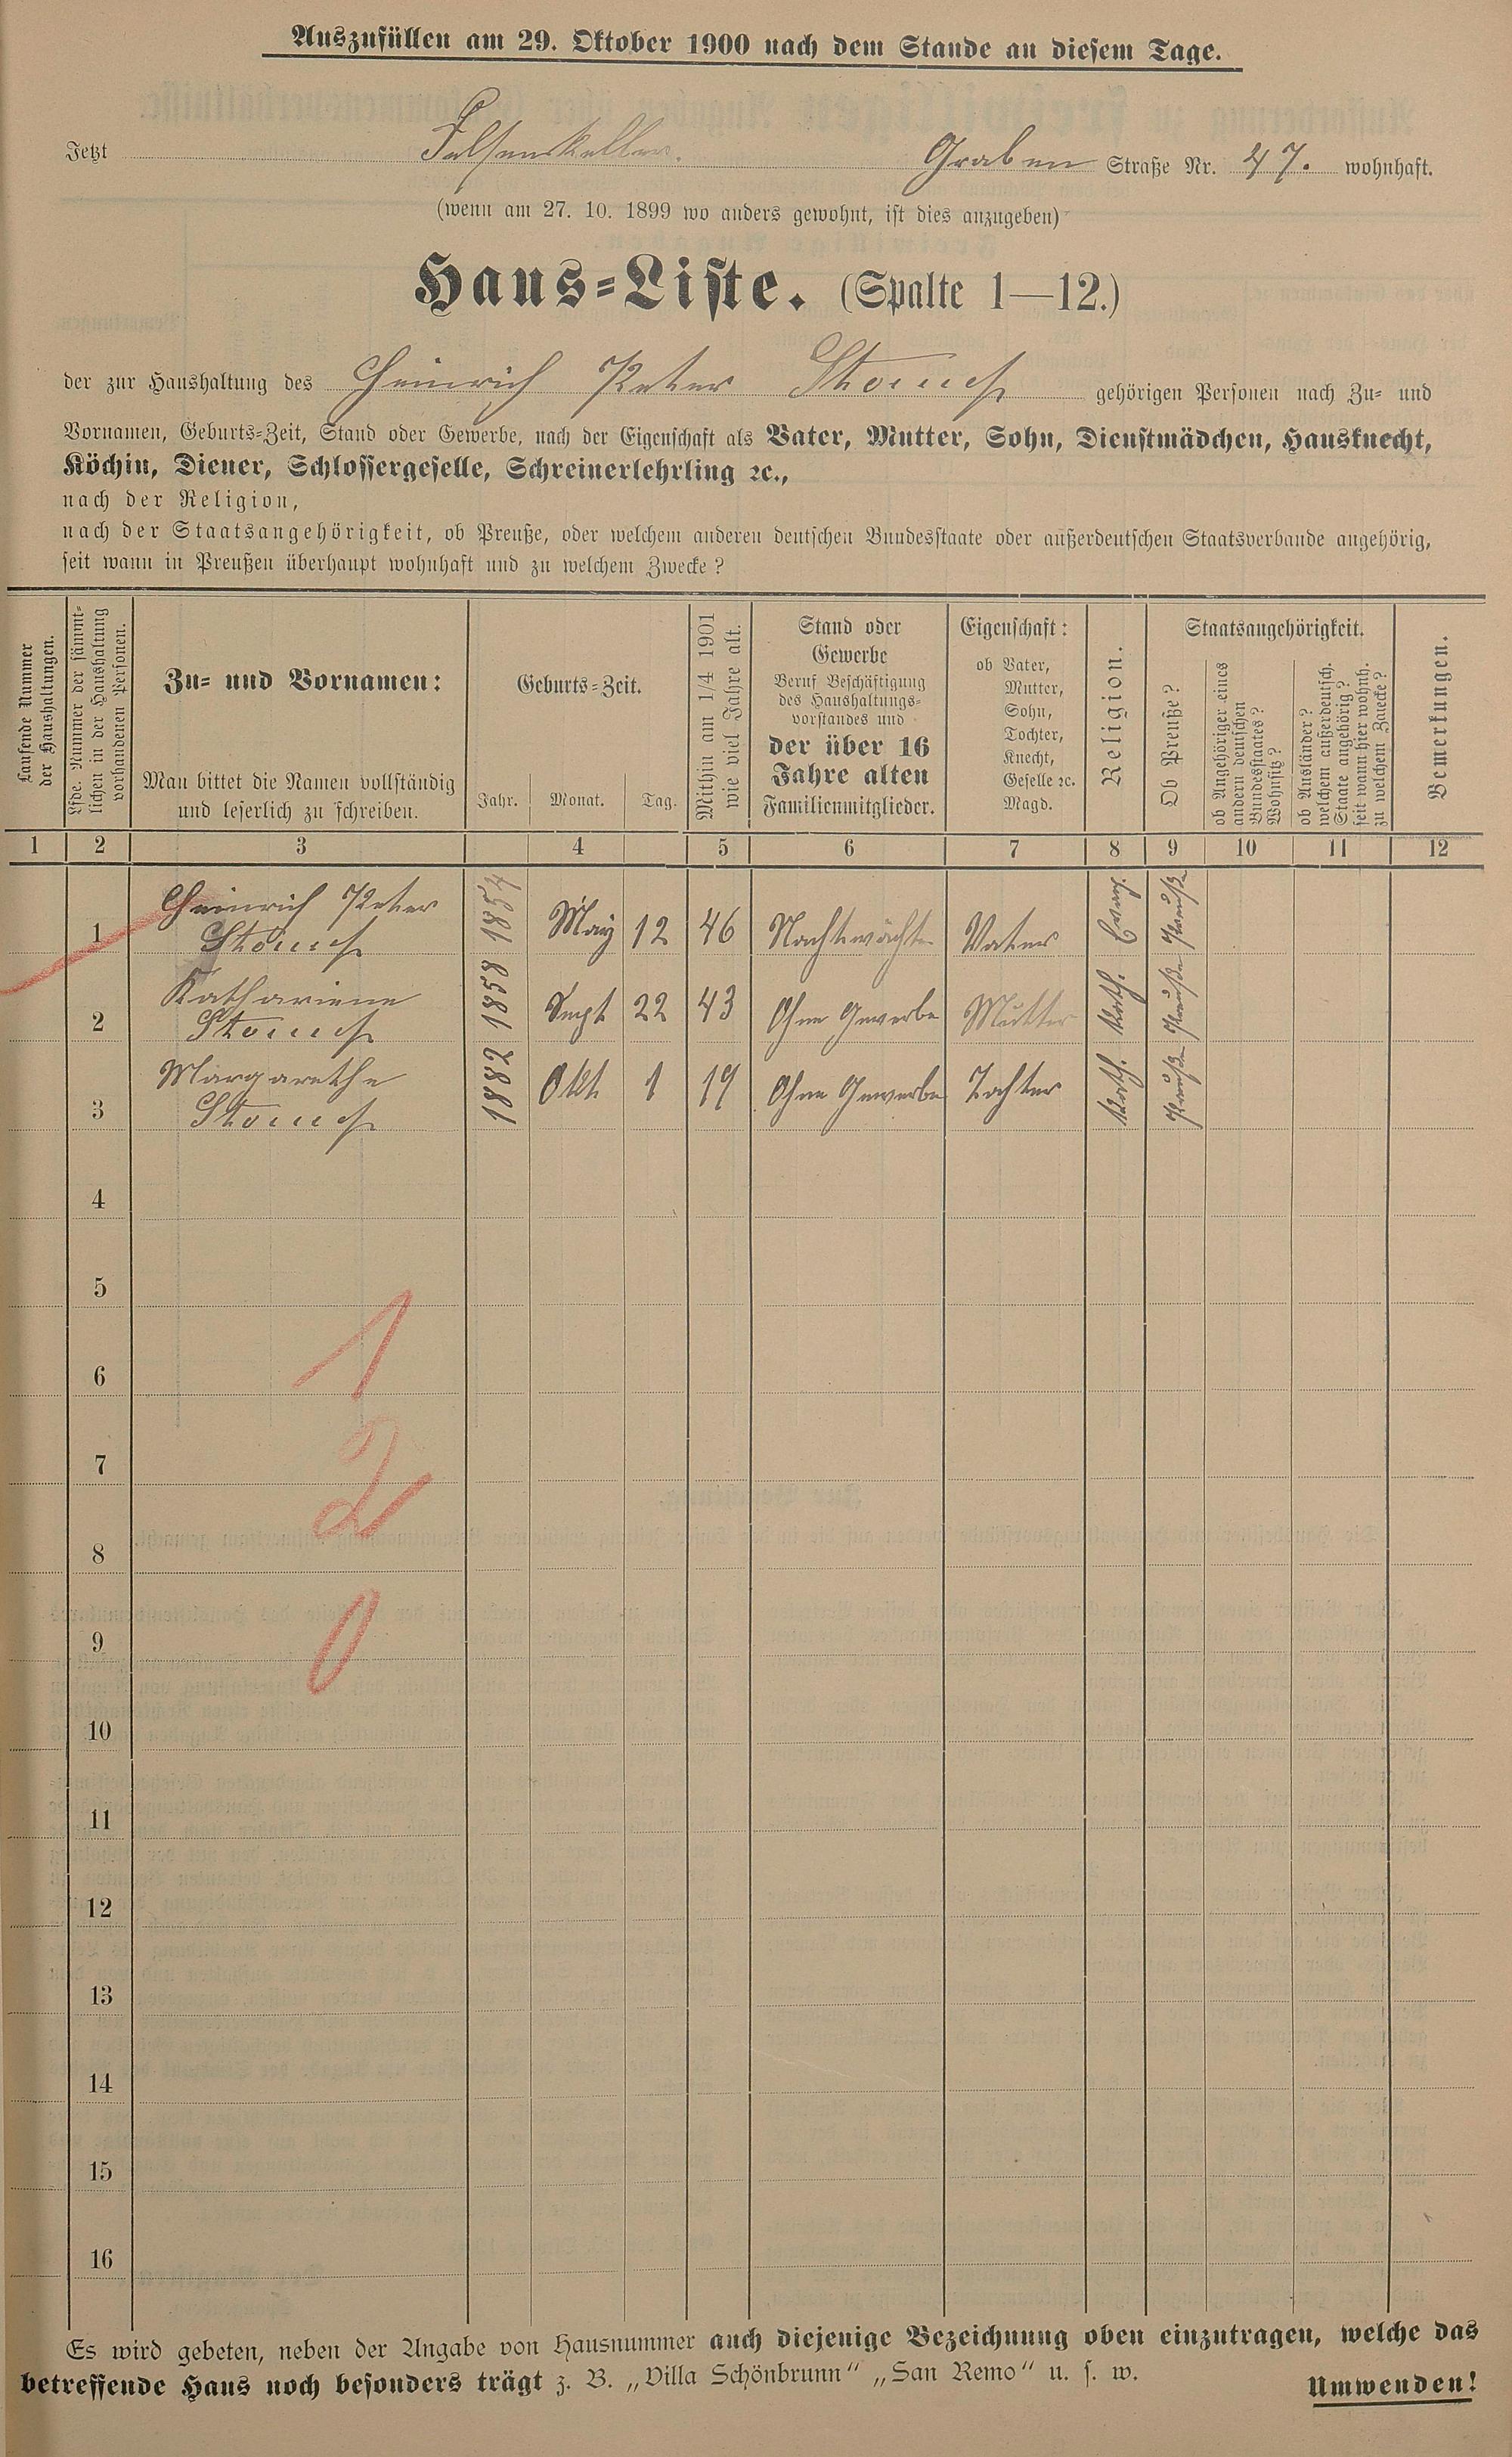 Auszufüllen am 29. Oktober 1900 nach dem Stande an diesem Tage.
Jetzt Felsenkeller. Graben Straße Nr. 47. wohnhaft.
(wenn am 27. 10. 1899 wo anders gewohnt, ist dies anzugeben)
Haus-Liste. (Spalte 1—12.)
der zur Haushaltung des Heinrich Peter gehörigen Personen nach Zu- und
Vornamen, Geburts-Zeit, Stand oder Gewerbe, nach der Eigenschaft als Vater, Mutter, Sohn, Dienstmädchen, Hausknecht,
Köchin, Diener, Schlossergeselle, Schreinerlehrling ꝛc.,
nach der Religion,
nach der Staatsangehörigkeit, ob Preuße, oder welchem anderen deutschen Bundesstaate oder außerdeutschen Staatsverbande angehörig,
seit wann in Preußen überhaupt wohnhaft und zu welchem Zwecke?
Laufende Nummer
der Haushaltungen.
Lfde. Nummer der sämmt-
lichen in der Haushaltung
vorhandenen Personen.
Zu- und Vornamen:
Man bittet die Namen vollständig
und leserlich zu schreiben.
Geburts-Zeit.
Jahr. Monat. Tag.
Mithin am 1/4 1901
wie viel Jahre alt.
Stand oder
Gewerbe
Beruf Beschäftigung
des Haushaltungs-
vorstandes und
der über 16
Jahre alten
Familienmitglieder.
Eigenschaft:
ob Vater,
Mutter,
Sohn,
Tochter,
Knecht,
Geselle ꝛc.
Magd.
Religion.
Staatsangehörigkeit.
Ob Preuße?
ob Angehöriger eines
andern deutschen
Bundesstaates?
Wohnsitz?
ob Ausländer?
welchem außerdeutsch.
Staate angehörig?
seit wann hier wohnh.
zu welchem Zwecke?
Bemerkungen.
1 2 3 4 5 6 7 8 9 10 11 12
Heinrich Peter
1 1854 May 12 46 Nachtwächter Vater Evang. Preuße
Katharine
2 1858 Sept 22 43 Ohne Gewerbe Mutter Kath. Preuße
Margarethe
3 1882 Okt. 1 19 Ohne Gewerbe Tochter Kath. Preuße
4
5
6
1
7
2
8
9
0
10
11
12
13
14
15
16
Es wird gebeten, neben der Angabe von Hausnummer auch diejenige Bezeichnung oben einzutragen, welche das
betreffende Haus noch besonders trägt z. B. „Villa Schönbrunn" „San Remo" u. s. w.
Umwenden!